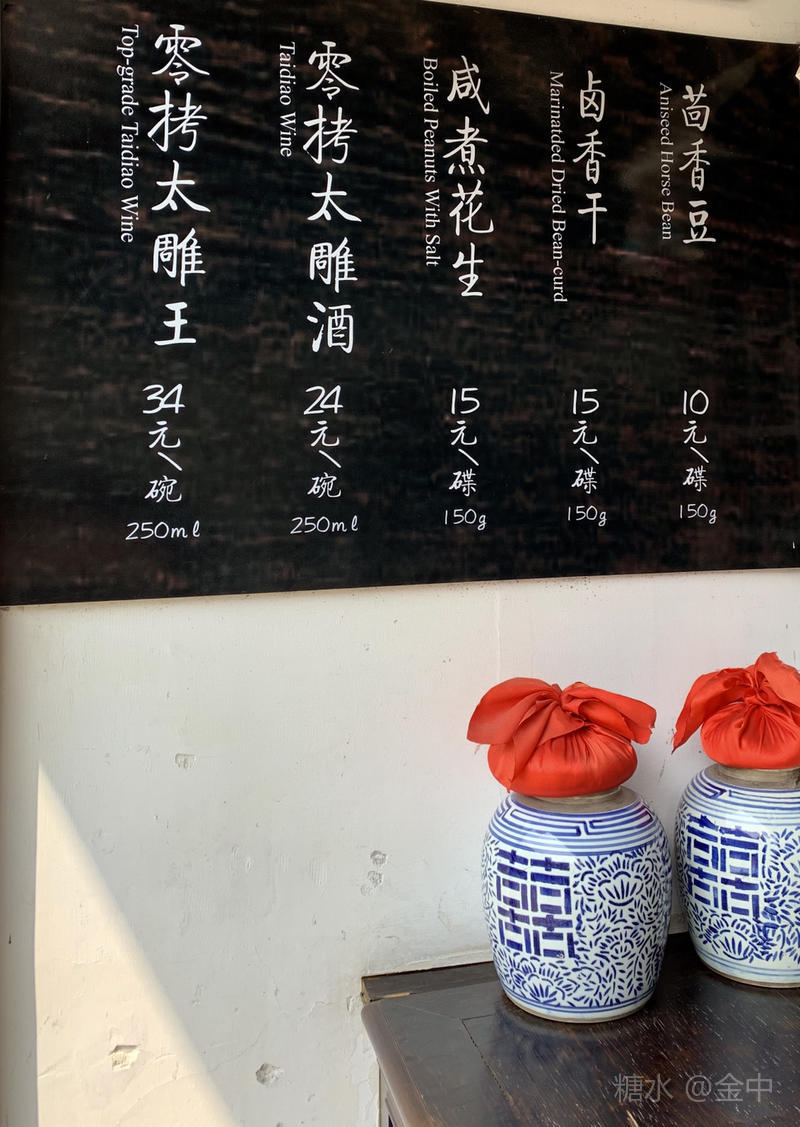 茴香豆
Aniseed Horse Bean
10
元/碟
150g
卤香干
Marinatded Dried Bean-curd
15
元/碟
150g
咸煮花生
Boiled Peanuts With Salt
15
元/碟
150g
零拷太雕酒
Taidiao Wine
24
元/碗
250ml
零拷太雕王
Top-grade Taidiao Wine
34
元/碗
250ml
囍
囍
糖水 @金中